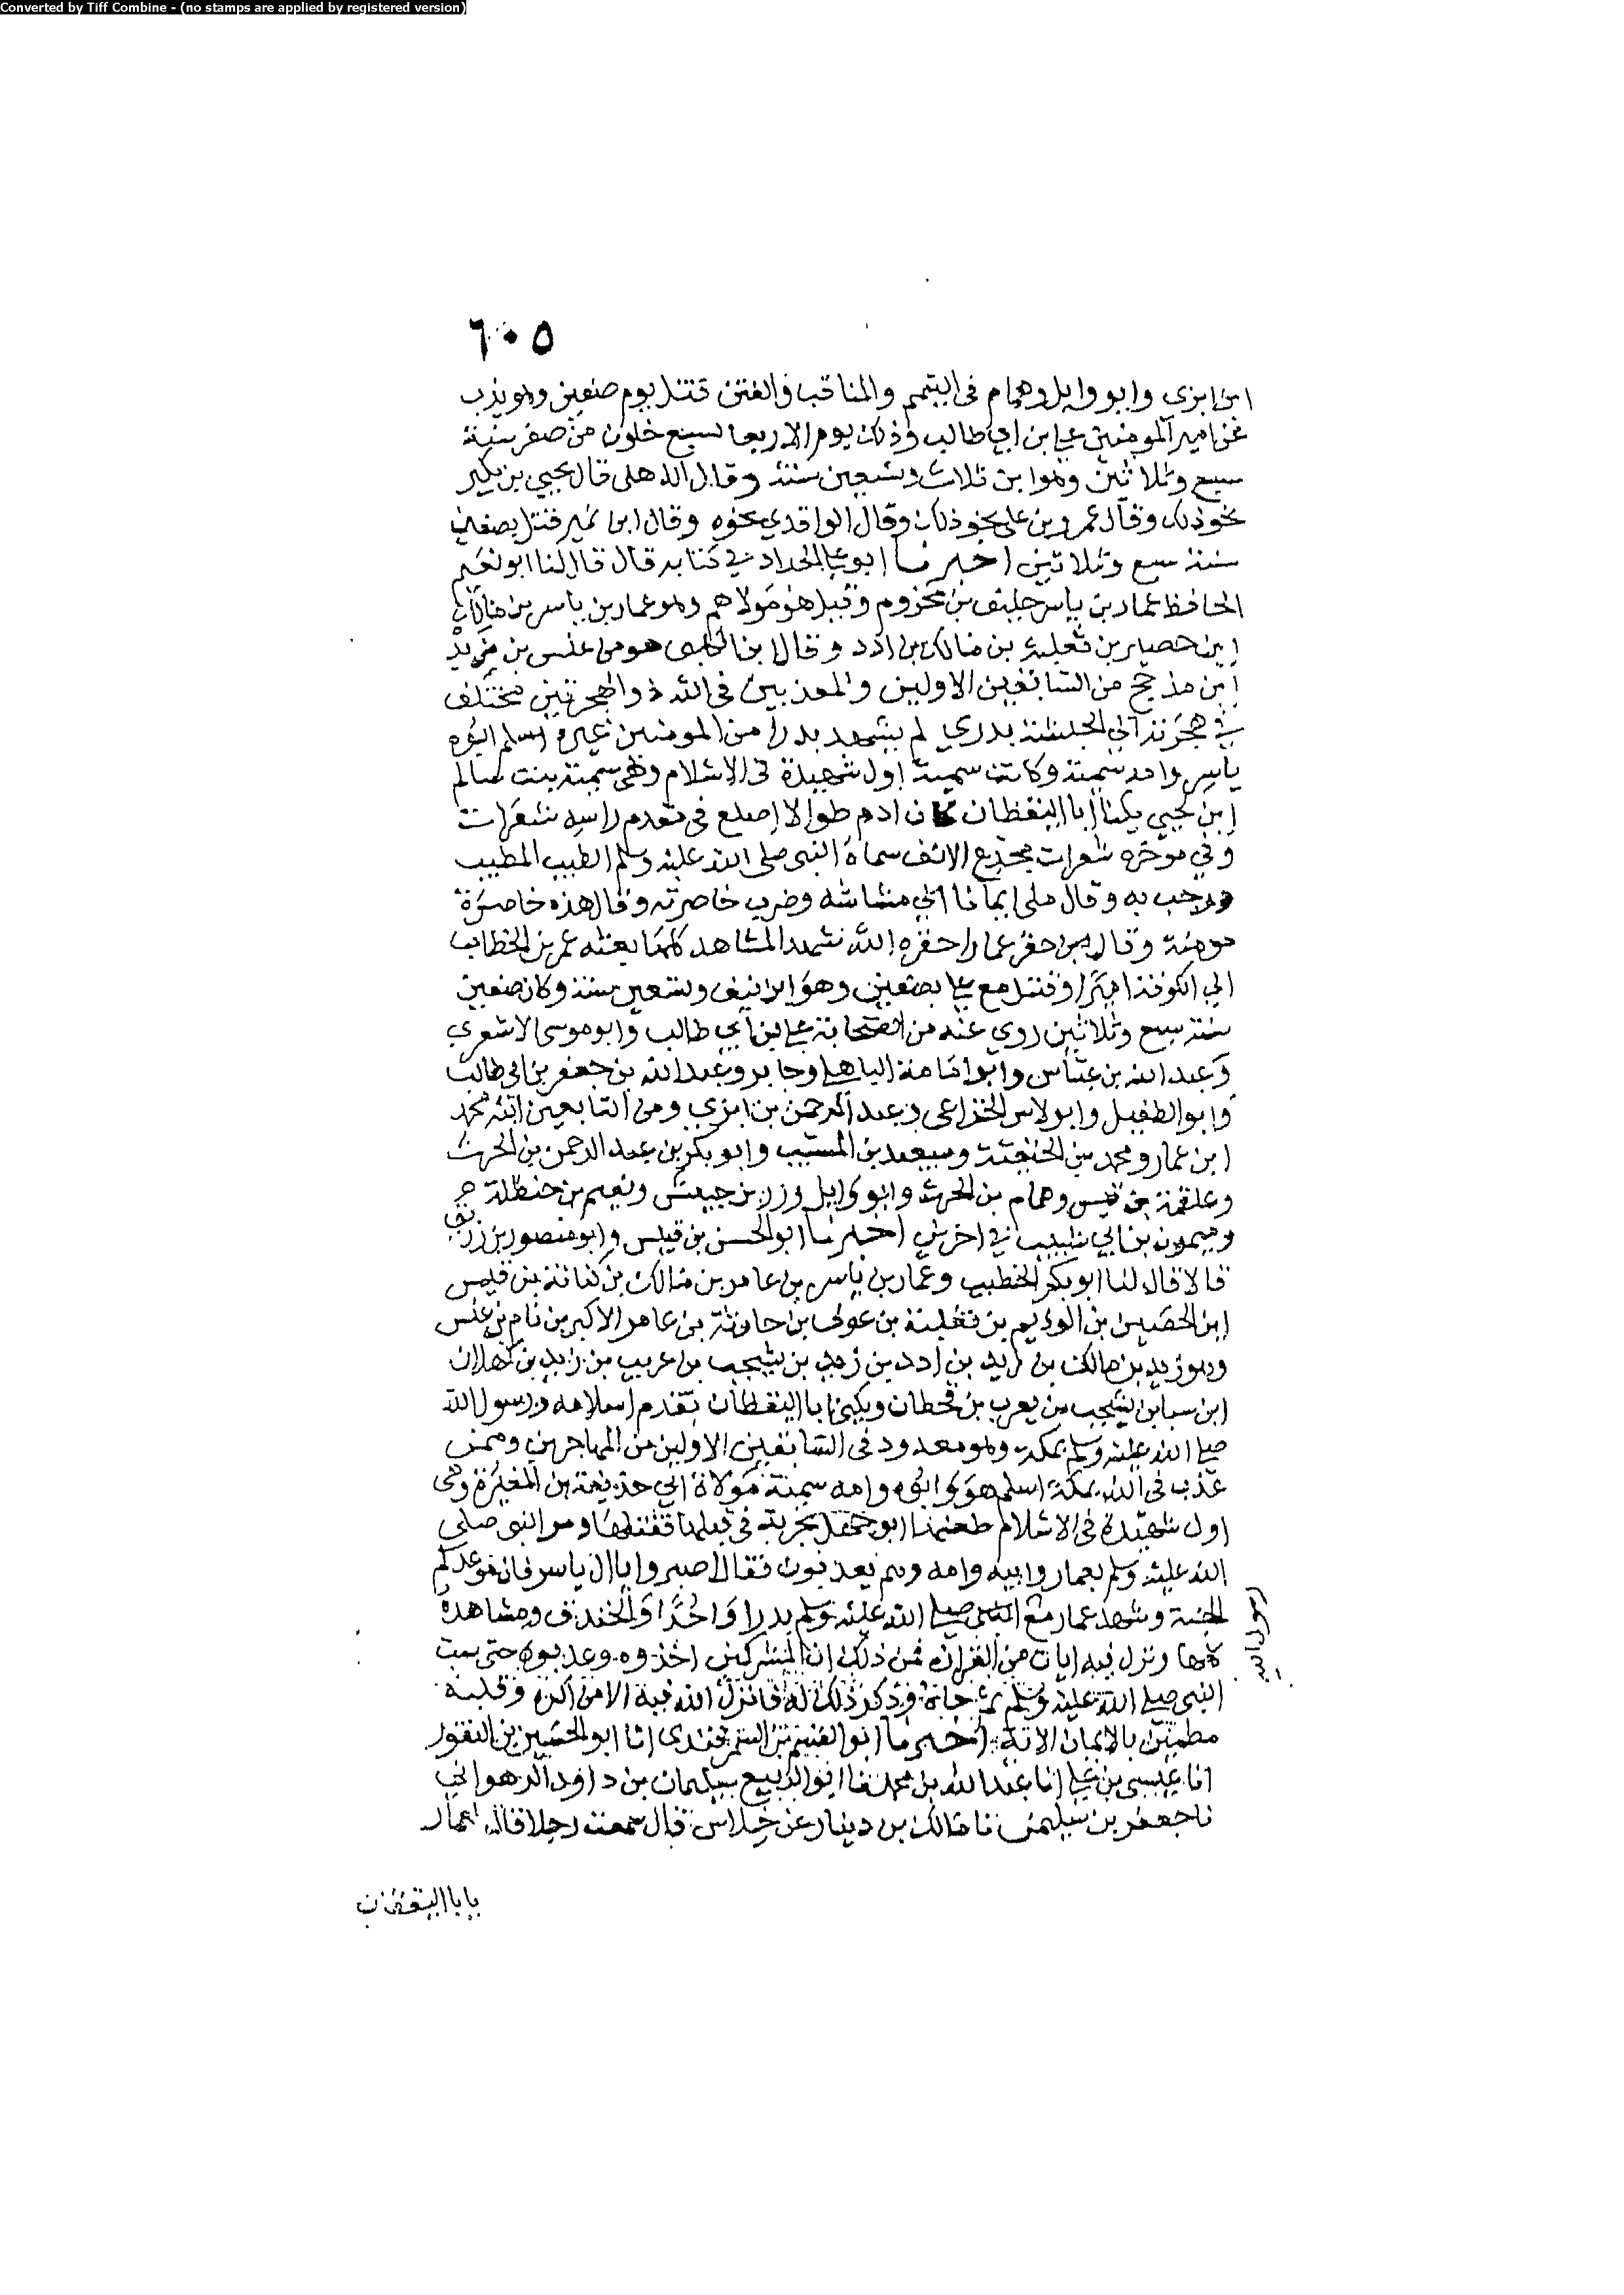 Converted by Tiff Combine - (no stamps are applied by registered version)
٦٠٥
ابن ابزي وابو وايل وهمام في التيمم والمناقب والفتن قتل يوم صفين وهو يذب
عن امير المومنين علي ابن ابي طالب وذلك يوم الاربعا لسبع خلون من صفر سنة
سبع وثلاثين وهو ابن ثلاث وتسعين سنة وقال الذهلي قال يحيي بن بكير
نحو ذلك وقال عمرو بن علي نحو ذلك وقال الواقدي نحوه وقال ابن نمير قتل بصفين
سنة سبع وثلاثين اخبرنا ابو علي الحداد في كتابه قال قال لنا ابو نعيم
الحافظ عمار بن ياسر حليف بن مخزوم وقيل هو مولاهم وهو عمار بن ياسر بن مالك
ابن حصين بن ثعلبة بن مالك بن ادد وقال ابن الكلبي هو من عنس بن يزيد
ابن مذحج من السابقين الاولين والمعذبين في الله ذو الهجرتين مختلف
في هجرته الي الحبشة بدري لم يشهد بدرا من المومنين غيره اسلم ابوه
ياسر وامه سمية وكانت سمية اول شهيدة في الاسلام وهي سمية بنت سالم
ابن يحيي يكنا ابا اليقظان كان ادم طوالا اصلع في مقدم راسه شعرات
وفي موخره شعرات مجدع الانف سماه النبي صلى الله عليه وسلم الطيب المطيب
ورحب به وقال ملي ايمانا الي مشاشه وضرب خاصرته وقال هذه خاصرة
مومنة وقال من حقر عمارا حقره الله شهد المشاهد كلها بعثه عمر بن الخطاب
الي الكوفة اميرا وقتل مع علي بصفين وهو ابن نيف وتسعين سنة وكان صفين
سنة سبع وثلاثين روي عنه من الصحابة علي بن ابي طالب وابو موسى الاشعري
وعبد الله بن عباس وابو امامة الباهلي وجابر وعبد الله بن جعفر بن ابي طالب
وابو الطفيل وابو لاس الخزاعي وعبد الرحمن بن ابزي ومن التابعين ابنه محمد
ابن عمار ومحمد بن الحنفية وسعيد بن المسيب وابو بكر بن عبد الرحمن بن الحرث
وعلقمة بن قيس وهمام بن الحرث وابو وايل وزر بن حبيش ونعيم بن حنظلة
وميمون بن ابي شبيب في اخرين اخبرنا ابو الحسن بن قبيس وابو منصور بن زريق
قالا قال لنا ابو بكر الخطيب وعمار بن ياسر بن عامر بن مالك بن كنانة بن قيس
ابن الحصين بن الوذيم بن ثعلبة بن عوف بن حارثة بن عامر الاكبر بن نام بن عنس
وهو زيد بن مالك بن ادد بن زيد بن يشجب بن عريب بن زيد بن كهلان
ابن سبا بن يشجب بن يعرب بن قحطان ويكنى ابا اليقظان تقدم اسلامه ورسول الله
صلى الله عليه وسلم بمكة وهو معدود في السابقين الاولين من المهاجرين وممن
عذب في الله بمكة اسلم هو وابوه وامه سمية مولاة ابي حذيفة بن المغيرة وهي
اول شهيدة في الاسلام طعنها ابو جهل بحربة في قبلها فقتلها ومر النبي صلى
الله عليه وسلم بعمار وابيه وامه وهم يعذبون فقال اصبروا يا ال ياسر فان موعدكم
الجنة وشهد عمار مع النبي صلى الله عليه وسلم بدرا واحدا والخندق ومشاهده
رسول الله
كلها ونزل فيه ايات من القران فمن ذلك ان المشركين اخذوه وعذبوه حتى سب
النبي صلى الله عليه وسلم ثم جاء فذكر ذلك له فانزل الله فيه الا من اكره وقلبه
مطمئن بالايمان الاية اخبرنا ابو القسم بن السمرقندي انا ابو الحسين بن النقور
انا عيسى بن علي انا عبد الله بن محمد نا ابو الربيع سليمان بن داود الزهراني
نا جعفر بن سليمن نا مالك بن دينار عن خلاس قال سمعت رجلا قال عمار
يا با اليقظان